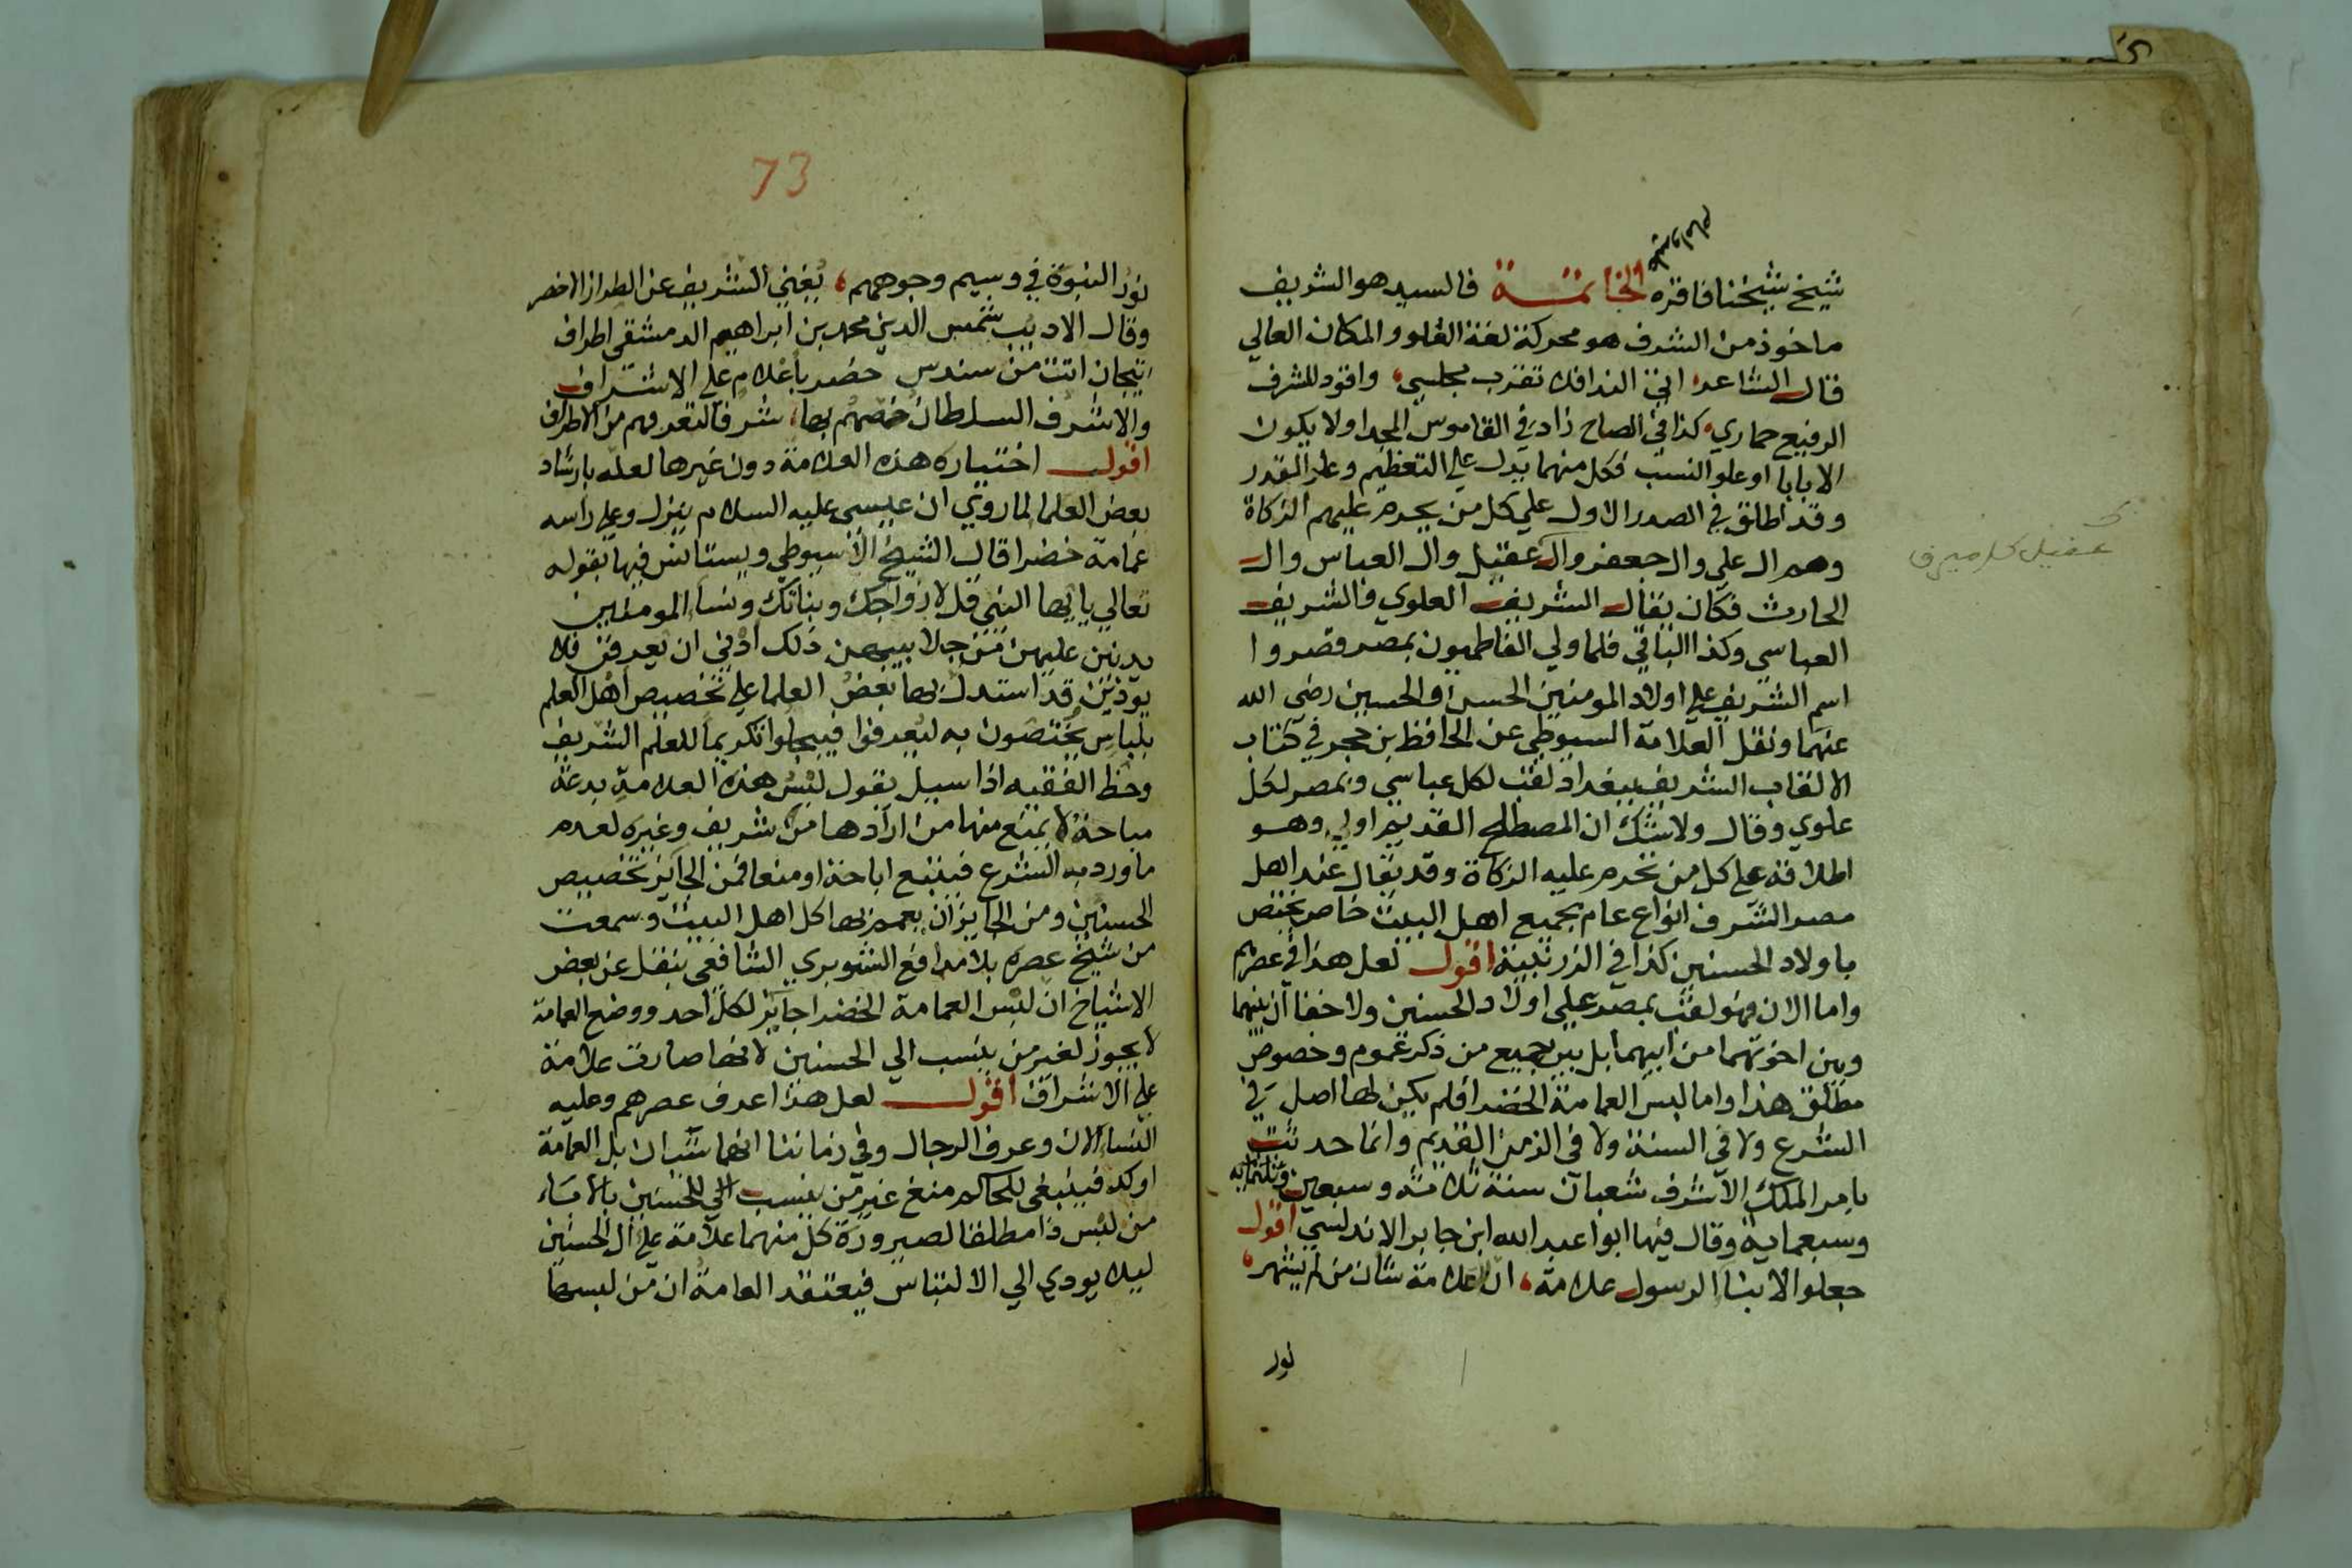 شيخ شيخنا فاقره الخاتمة فالسيد هو الشريف
ماخوذ من الشرف هو محركة لغة العلو والمكان العالي
قال الشاعر اتي الندا فلا تقرب مجلسي، واقود للشرف
الرفيع حماري، كذا في الصاح زاد في القاموس المجد اولا يكون
الا بابا او علو النسب فكل منهما يدل علي التعظيم وعلو القدر
وقد اطلق في الصدر الاول علي كل من يحرم عليهم الزكاة
وهم ال علي وال جعفر وال عقيل وال العباس وال
الحارث فكان يقال الشريف العلوي فالشريف
العباسي وكذا الباقي فلما ولي الفاطميون بمصر قصروا
اسم الشريف علي اولاد المومنين الحسن والحسين رضي الله
عنهما ونقل العلامة السيوطي عن الحافظ بن حجر في كتاب
الالقاب الشريف ببغداد لقب لكل عباسي وبمصر لكل
علوي وقال ولا شك ان المصطلح القديم اولي وهو
اطلاقه علي كل من تحرم عليه الزكاة وقد يقال عند اهل
مصر الشرف انواع عام بجميع اهل البيت خاص يختص
باولاد الحسنين كذا في الزرنبية اقول لعل هذا في عصرهم
واما الان فهو لقب بمصر علي اولاد الحسنين ولا خفا ان بينهما
وبين اخوتهما من ابيهما بل بين جميع من ذكر عموم وخصوص
مطلق هذا واما لبس العمامة الخضرا فلم يكن لها اصل في
الشرع ولا في السنة ولا في الزمن القديم وانما حدثت
بامر الملك الاشرف شعبان سنة ثلاثة وسبعين
وسبعماية وقال فيها ابوا عبد الله ابن جابر الاندلسي اقول
جعلوا الابنا الرسول علامة، ان العلامة شان من لم يشهر،
نور
عقيل
73
نور النبوة في وسيم وجوههم، يغني الشريف عن الطراز الاخضر
وقال الاديب شمس الدين محمد بن ابراهيم الدمشقي اطراف
تيجان اتت من سندس خضر باعلام علي الاشراف
والاشرف السلطان خصهم بها، شرفا لتعرفهم من الاطراف
اقول اختياره هذه العلامة دون غيرها لعله بارشاد
بعض العلما لما روي ان عيسي عليه السلام ينزل وعلي راسه
عمامة خضرا قال الشيخ الاسيوطي ويستانس فيها بقوله
تعالي يا ايها النبي قل لازواجك وبناتك ونساء المومنين
يدنين عليهن من جلابيبهن ذلك ادني ان يعرفن فلا
يوذين قد استدل بها بعض العلما علي تخصيص اهل العلم
بلباس يختصون به ليعرفوا فيبجلوا تكريما للعلم الشريف
وحظ الفقيه اذا سييل يقول لبس هذه العلامة بدعة
مباحة لا يمنع منها من ارادها من شريف وغيره لعدم
ما ورد به الشرع فيتبع اباحة او منعا فمن الجائز تخصيص
الحسنين ومن الجايز ان يعمم بها كل اهل البيت وسمعت
من شيخ عصره بلا مدافع الشوبري الشافعي ينقل عن بعض
الاشياخ ان لبس العمامة الخضرا جايز لكل احد ووضع العلامة
لا يجوز لغير من ينسب الي الحسنين لانها صارت علامة
علي الاشراف اقول لعل هذا عرف عصرهم وعليه
النساء الان وعرف الرجال وفي زماننا انهما سيان بل العمامة
اوكد فينبغي للحاكم منع غير من ينسب الي الحسنين بالامساء
من لبس ذا مطلقا لصيرورة كل منهما علامة علي ال الحسنين
ليلا يودي الي الالتباس فيعتقد العامة ان من لبسها